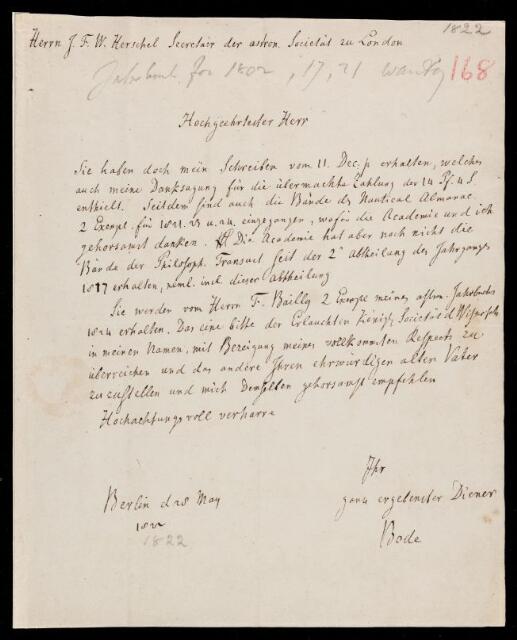 1822
Herrn J. F. W. Herschel Secretair der astron. Societät zu London
Jahrbuch for 1802, 17, 21 wanting
168
Hochgeehrtester Herr
Sie haben doch mein Schreiben vom 11. Dec. p. erhalten, welches
auch meine Danksagung für die übermachte Zahlung der 14 Pf. 4 S.
enthielt. Seitdem sind auch die Bände des Nautical Almanac
2 Exempl. für 1821. 23 u. 24. eingegangen, wofür die Academie und ich
gehorsamst danken. Die Academie hat aber noch nicht die
Bände der Philosoph. Transact seit der 2n Abtheilung des Jahrganges
1817 erhalten, neml. incl dieser Abtheilung
Sie werden vom Herrn F. Bailly 2 Exempl meines astron. Jahrbuchs
1824 erhalten. Das eine bitte der Erlauchten Königl. Societät d Wissensch
in meinen Namen, mit Bezeigung meines vollkommsten Respects zu
überreichen und das andere Ihren ehrwürdigen alten Vater
zuzustellen und mich Denselben gehorsamst empfehlen
Hochachtungsvoll verharre
Ihr
ganz ergebenster Diener
Bode
Berlin d 28 May
1822
1822